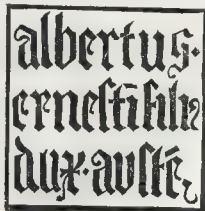 albertus·
erneſtī filii
dux·auſtē